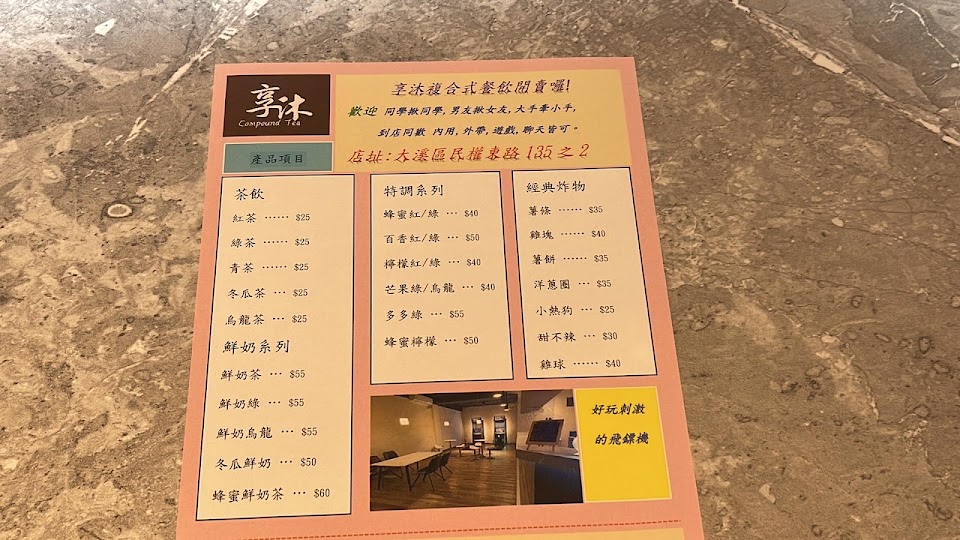 享沐
Compound Tea
享沐複合式餐飲開賣囉!
歡迎 同學揪同學,男友揪女友,大手牽小手,
到店同歡 內用,外帶,遊戲,聊天皆可。
店址:大溪區民權東路135之2
產品項目
茶飲
紅茶 …… $25
綠茶 …… $25
青茶 …… $25
冬瓜茶 … $25
烏龍茶 … $25
鮮奶系列
鮮奶茶 … $55
鮮奶綠 … $55
鮮奶烏龍 … $55
冬瓜鮮奶 … $50
蜂蜜鮮奶茶 … $60
特調系列
蜂蜜紅/綠 … $40
百香紅/綠 … $50
檸檬紅/綠 … $40
芒果綠/烏龍 … $40
多多綠 … $55
蜂蜜檸檬 … $50
經典炸物
薯條 …… $35
雞塊 …… $40
薯餅 …… $35
洋蔥圈 … $35
小熱狗 … $25
甜不辣 … $30
雞球 …… $40
好玩刺激
的飛鏢機